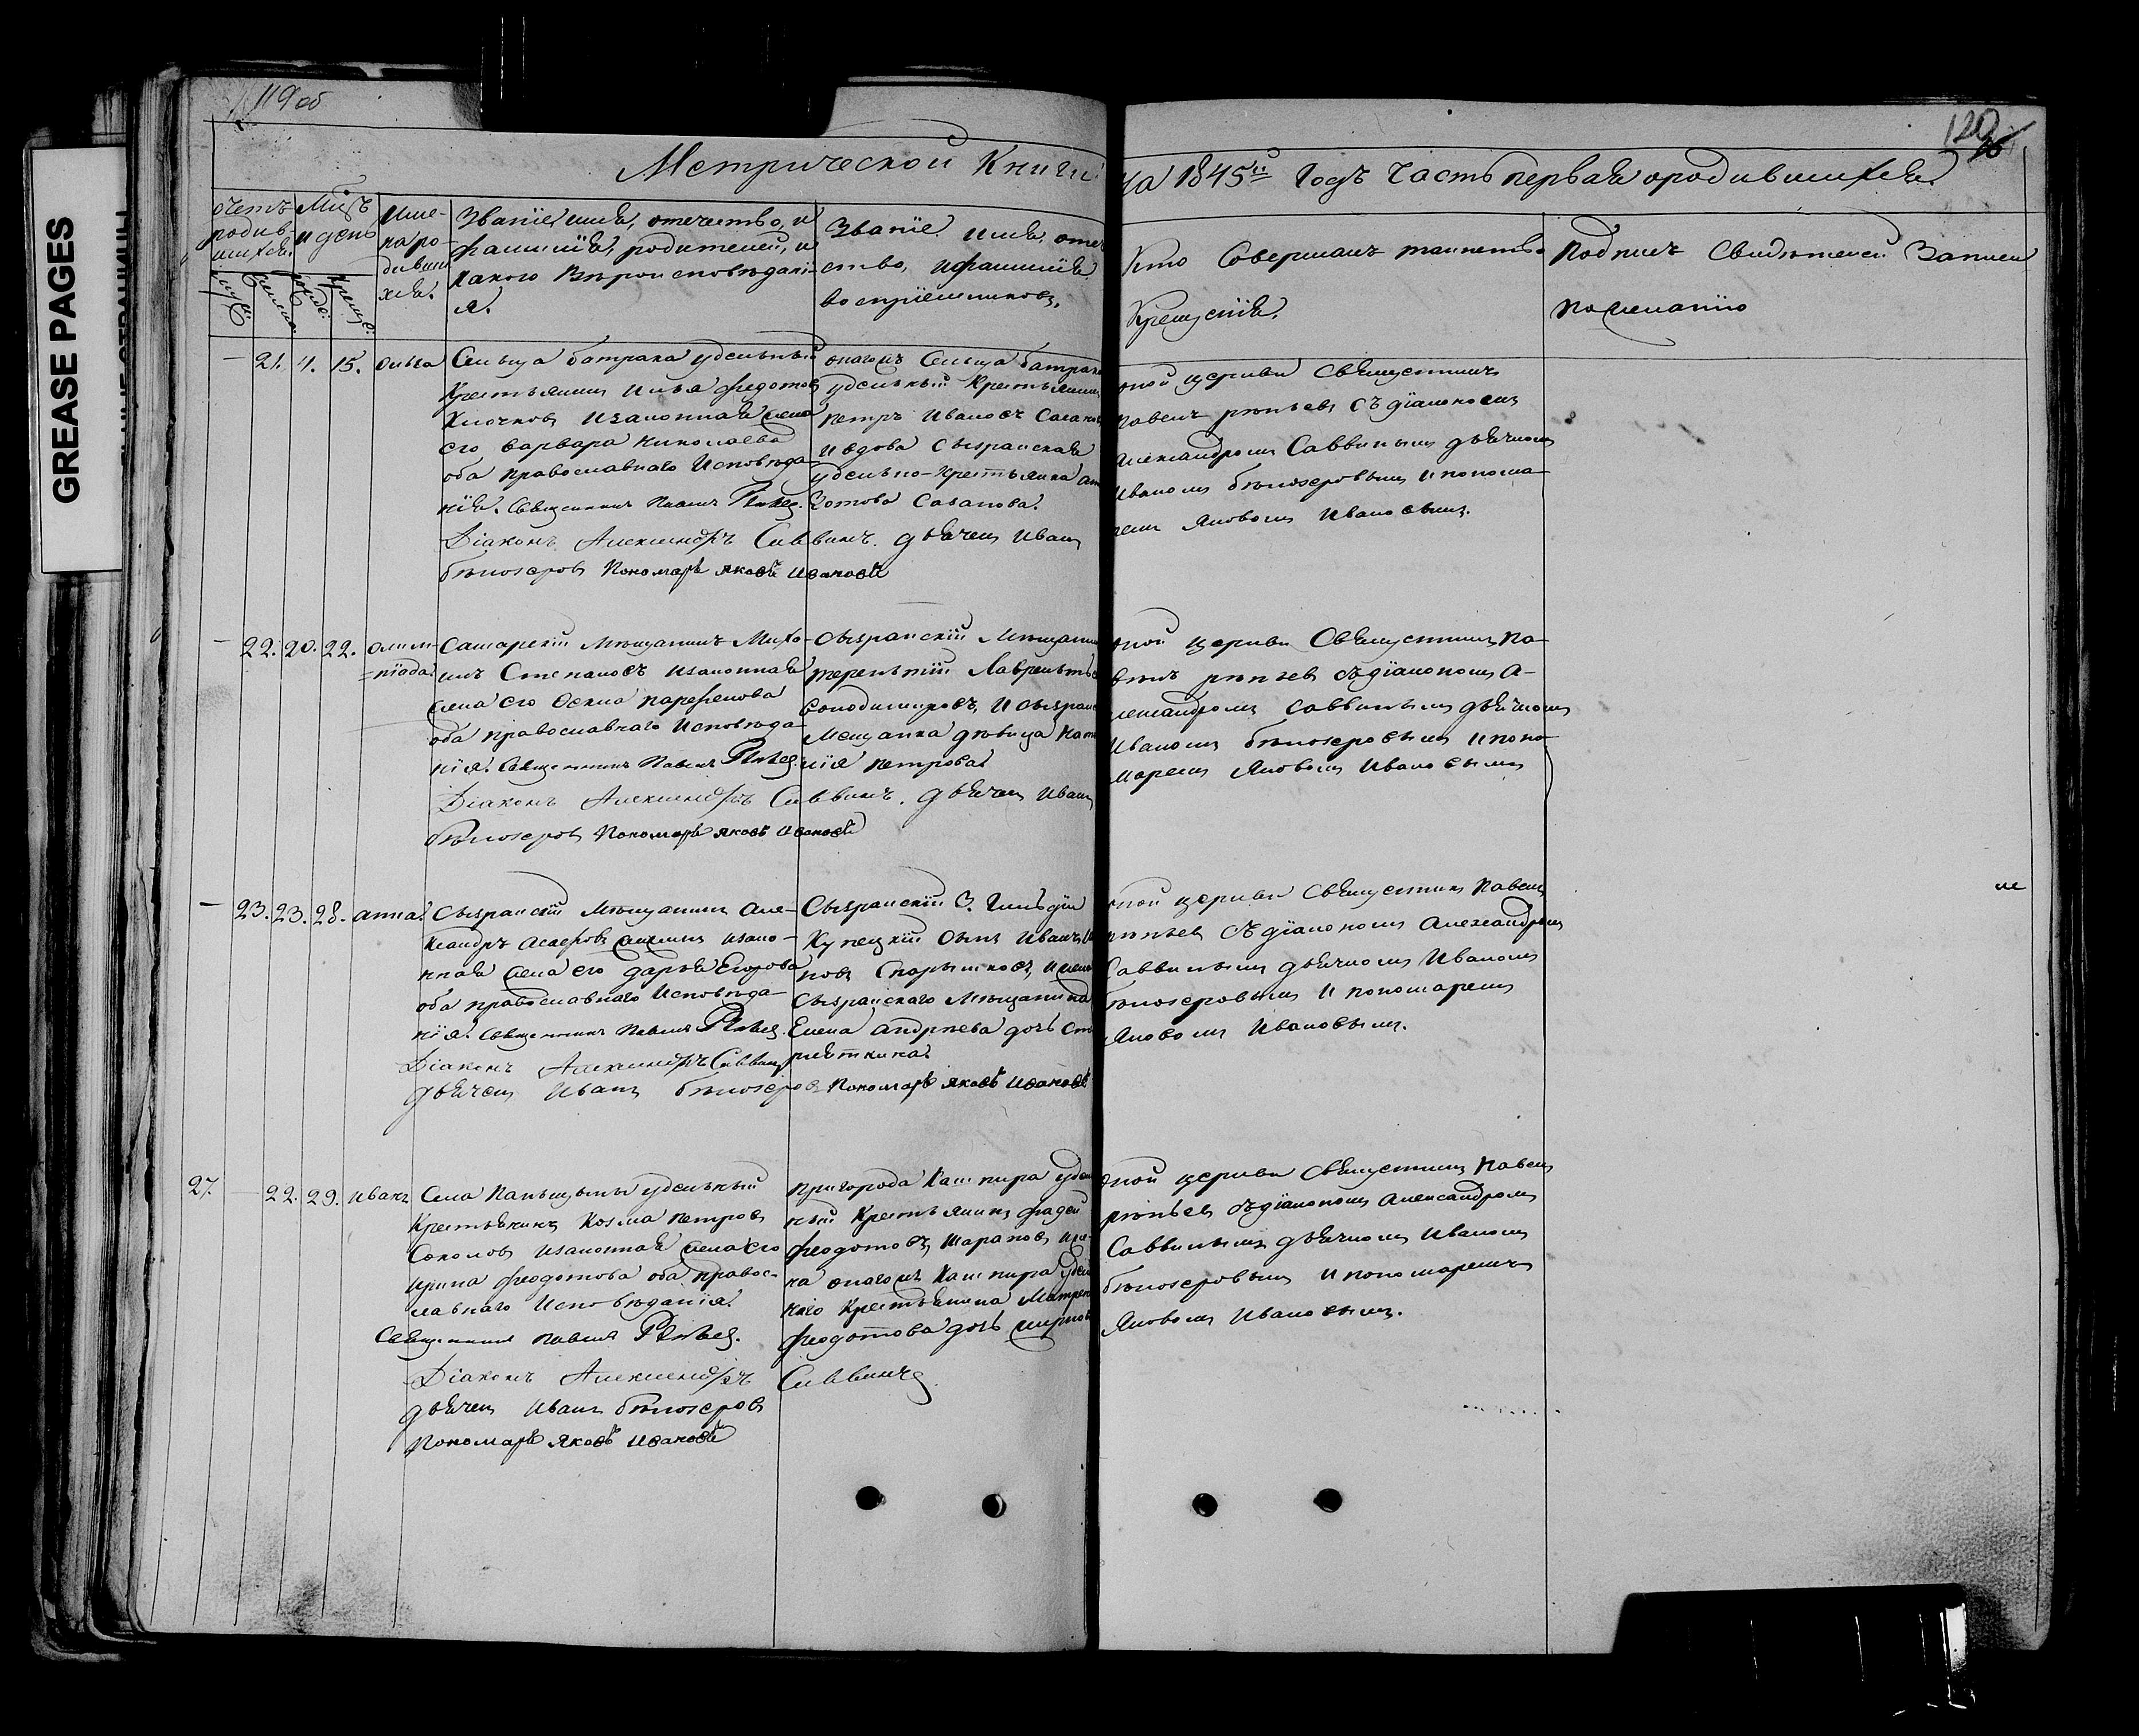 GREASE PAGES
119 об
120
Метрической Книги
на 1845й Годъ Часть первая ородившихся.
Счетъ родив-шихся.
Мцъ и день
Име-на ро-дивши хся.
Званіе, имя, отечество, и
фамилія, родителей, и
какого Вѣроисповѣдані-
я.
Званіе имя, отче
ство, ифамилія
воспріемниковъ.
Кто Совершалъ таинство
Крещенія.
Подписъ Свидѣтелей Записи
пожеланію
— 21. 4. 15. Ольга
Сельца батрака удельный
Крестьянинъ Илья федотовъ
Клочковъ изаконная жена
его варвара николаева
оба православнаго Исповѣда-
нія. Священникъ Павелъ
Діаконъ Александръ Саввинъ. дьячекъ Иванъ
бѣлозеровъ Пономарь яковъ ивановъ
онагожъ Сельца батрака
удельный Крестьянинъ
петръ Ивановъ
ивдова Сызранская
удельно-Крестьянка
Зотова Сазанова.
оной церкви Священникъ
павелъ съдіакономъ
александромъ Саввинымъ дьячкомъ
Иваномъ бѣлозеровымъ ипонома-
ремъ Яковомъ Ивановымъ.
— 22. 20. 22. олим-
=піада.
Самарскій Мѣщанинъ Миха-
илъ Степановъ изаконная
жена его парфенова
оба православнаго Исповѣда-
нія. Священникъ Павелъ
Діаконъ Александръ Саввинъ. дьячекъ Иванъ
бѣлозеровъ Пономарь яковъ ивановъ
Сызранскій Мѣщанинъ
терентій Лаврентье
и сызранс
Мещанка дѣвица
петрова
оной церкви Священникъ па-
велъ съдіакономъ а-
лександромъ саввинымъ дьячкомъ
Иваномъ бѣлозеровымъ ипоно-
маремъ Яковомъ Ивановымъ
— 23. 23. 28. анна.
Сызранскій Мѣщанинъ але-
ксандръ изако-
нная жена его дарья Егорова
оба православнаго Исповѣда-
нія. Священникъ Павелъ
Діаконъ Александръ Саввинъ
дьячекъ Иванъ бѣлозеровъ Пономарь яковъ ивановъ
Сызранскій 3. Гильдіи
Купецкій сынъ Иванъ
новъ ижена
Сызранскаго Мѣщанина
Елена андреева дочь
оной церкви Священникъ павелъ
съдіакономъ александромъ
Саввинымъ дьячкомъ Иваномъ
бѣлозеровымъ и пономаремъ
Яковомъ Ивановымъ.
27. — 22. 29. иванъ
Села Паньшины удельный
Крестьянинъ Козма петровъ
Соколовъ изаконная жена его
ирина федотова оба правос-
лавнаго Исповѣданія.
Священникъ павелъ
Діаконъ Александръ Саввинъ
дьячекъ Иванъ бѣлозеровъ
Пономарь яковъ ивановъ
пригорода Кашпира удел
ный Крестьянинъ фадей
федотовъ Шарановъ иже-
на онагожъ Кашпира удел
наго Крестьянина Матрена
федотова дочь
оной церкви Священникъ павелъ
съдіакономъ александромъ
Саввинымъ дьячкомъ Иваномъ
бѣлозеровымъ и пономаремъ
Яковомъ Ивановымъ.